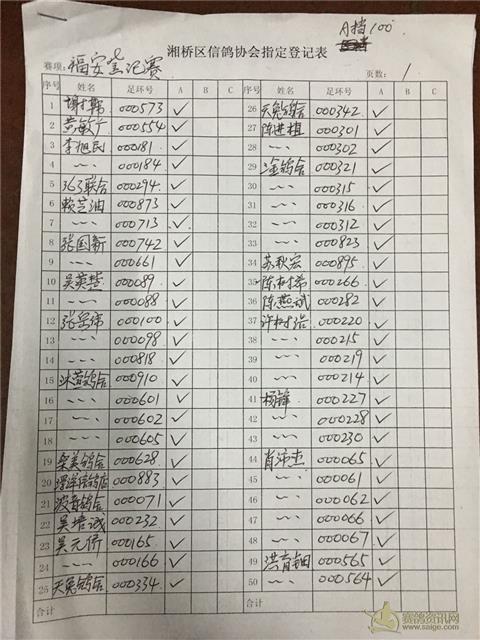 A档100
湘桥区信鸽协会指定登记表
赛项: 福安 赛 页数: 1
序号 姓名 足环号 A B C 序号 姓名 足环号 A B C
1 000573 ✓ 26 天兔鸽舍 000342 ✓
2 黄敏广 000554 ✓ 27 陈进植 000301 ✓
3 李旭民 000181 ✓ 28 〃 000302 ✓
4 〃 000184 ✓ 29 淦鸽舍 000321 ✓
5 363联合 000294 ✓ 30 〃 000315 ✓
6 赖芝油 000873 ✓ 31 〃 000316 ✓
7 〃 000713 ✓ 32 〃 000312 ✓
8 张国新 000742 ✓ 33 〃 000823 ✓
9 〃 000661 ✓ 34 苏秋宏 000895 ✓
10 吴英楚 000089 ✓ 35 陈树希 000266 ✓
11 〃 000088 ✓ 36 陈燕斌 000282 ✓
12 张岳伟 000100 ✓ 37 许树浩 000220 ✓
13 〃 000098 ✓ 38 〃 000215 ✓
14 〃 000818 ✓ 39 〃 000219 ✓
15 鸽舍 000910 ✓ 40 〃 000214 ✓
16 〃 000601 ✓ 41 杨锋 000227 ✓
17 〃 000602 ✓ 42 〃 000228 ✓
18 〃 000605 ✓ 43 〃 000230 ✓
19 荣美鸽舍 000628 ✓ 44 肖沛杰 000065 ✓
20 000883 ✓ 45 〃 000061 ✓
21 波音鸽舍 000071 ✓ 46 〃 000062 ✓
22 吴培诚 000232 ✓ 47 〃 000066 ✓
23 吴元侨 000165 ✓ 48 〃 000067 ✓
24 〃 000166 ✓ 49 洪育钿 000565 ✓
25 天兔鸽舍 000334 ✓ 50 〃 000564 ✓
合计 合计
赛鸽资讯网
www.saige.com